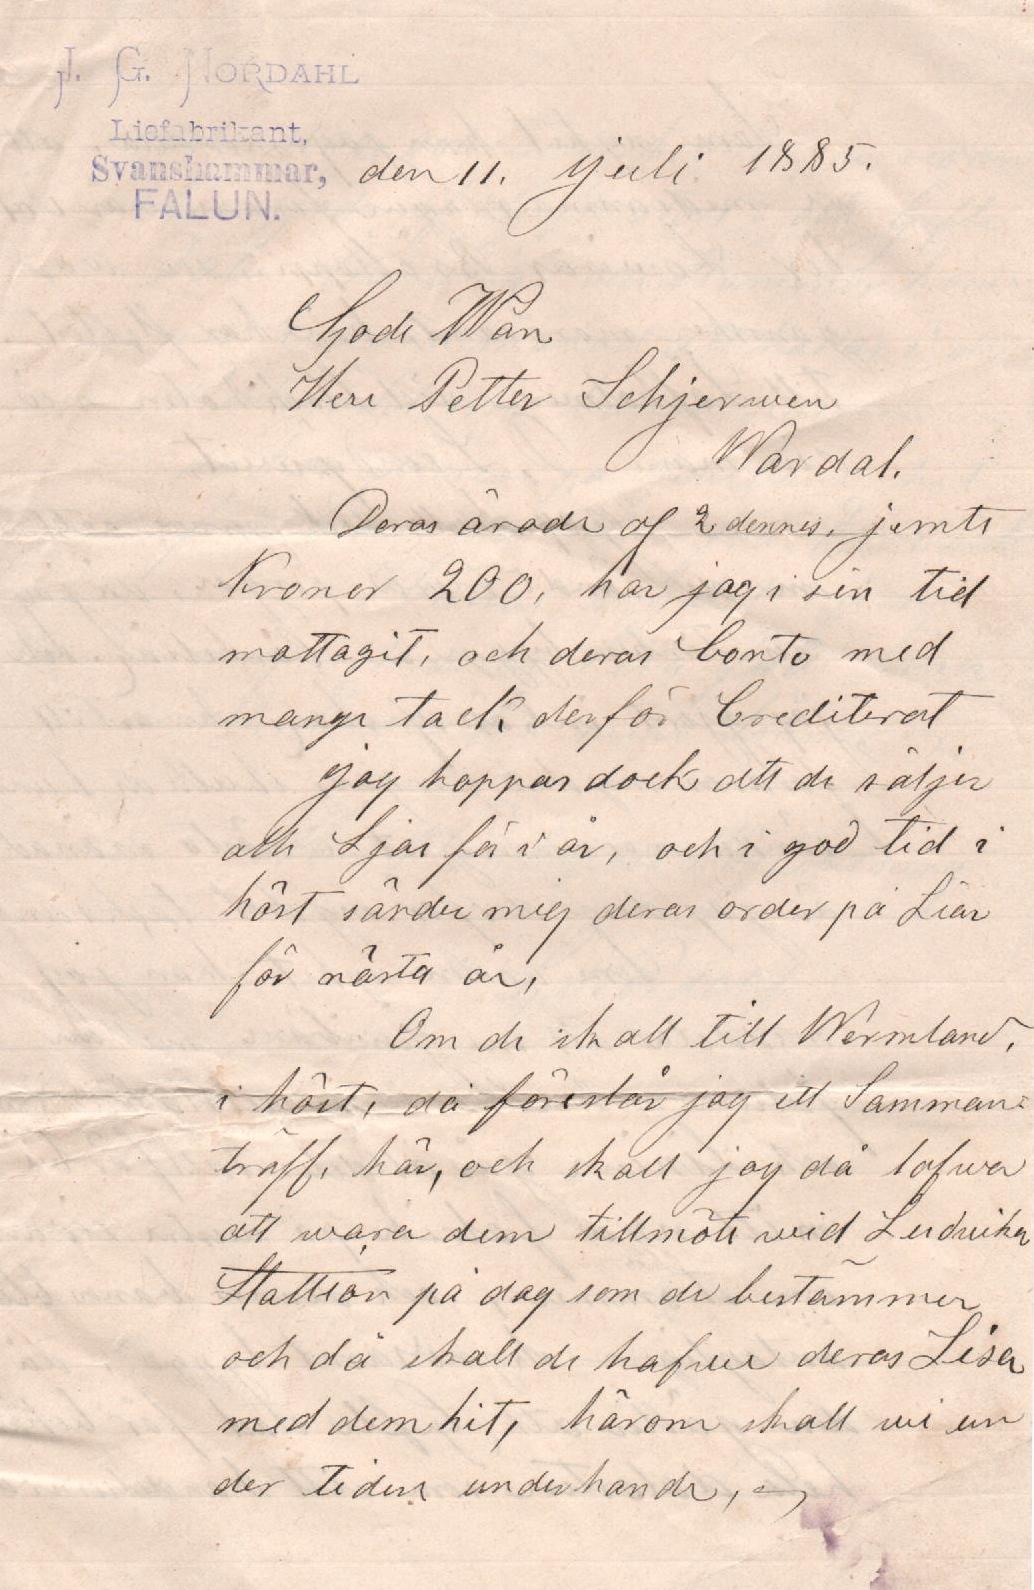 J. G. NORDAHL
Liefabrikant,
Svanshammar,
FALUN.
den 11. juli 1885.
Gode Wän
Herr Petter Schjerwen
Wardal.
Deras ärade af 2 dennes, jemte
Kroner 200, har jag i sin tid
mottagit, och deras Conto med
mange tack derför Crediterat
jag hoppas dock att de säljer
alla Ljar för i år, och i god tid i
höst sänder mig deras order på Liar
för nästa år,
Om de skall till Wermland,
i höst, då föreslår jag ett Samman=
träff, här, och skall jag då lofwa
att wara dem tillmöte wid Ludvika
Stattion på dag som de bestämmer
och då skall de hafwa deras Lisa
med dem hit, härom skall wi un
der tiden underhandla,